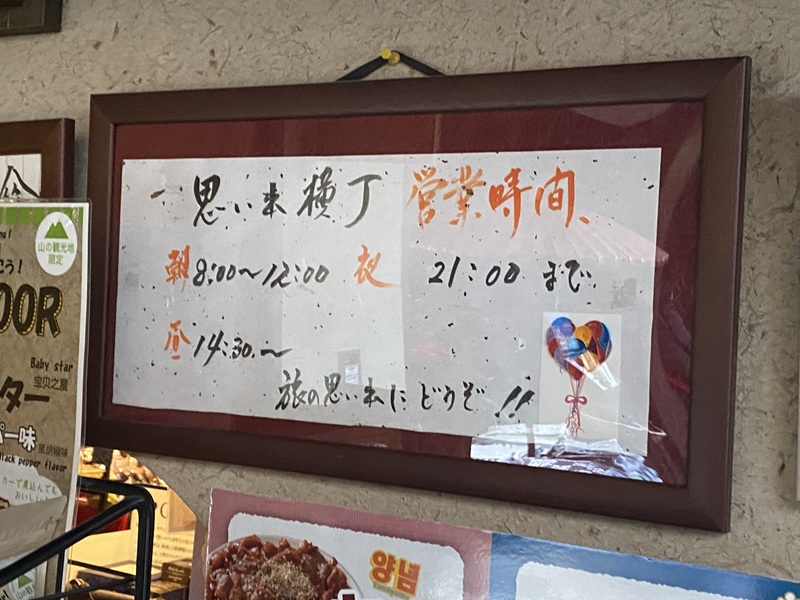 一思い本横丁 営業時間、
朝 8:00〜12:00 夜 21:00 まで
昼 14:30.〜
旅の思い本に どうぞ !!
山の観光地
限定
Baby star
宝贝之星
ター
パー味
黑胡椒味
Black pepper flavor
양념